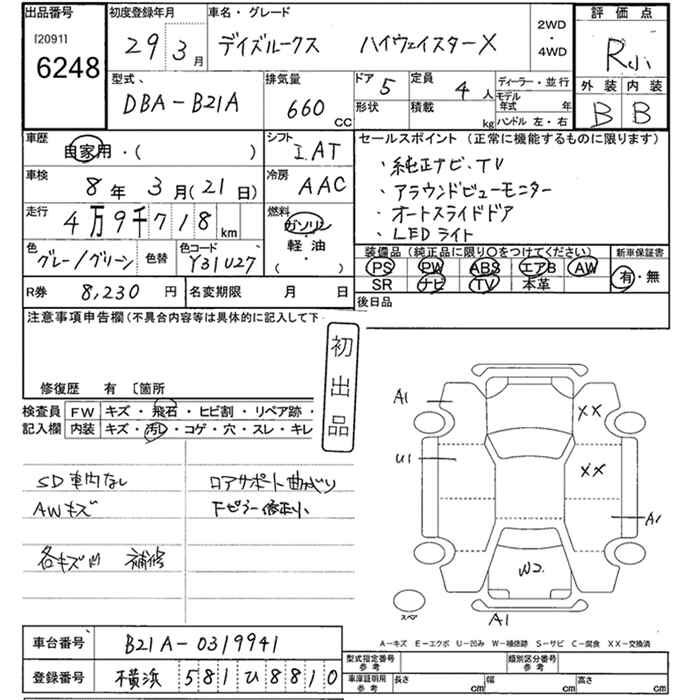 出品番号
[2091]
6248
初度登録年月
29 3月
車名・グレード
デイズルークス ハイウェイスターX
2WD
・
4WD
評価点
R小
外装 内装
B B
型式
DBA-B21A
排気量
660 CC
ドア 5
定員 4人
形状
積載 kg
ディーラー・並行
モデル年式 年
ハンドル 左・右
車歴
自家用・( )
シフト
I.AT
車検
8年 3月(21日)
冷房
AAC
走行
4万9千718km
燃料
ガソリン
軽・油
( )
色
グレー/グリーン
色替
色コード
Y31U27
R券 8,230円
名変期限 月 日
セールスポイント (正常に機能するものに限ります)
・純正ナビ・TV
・アラウンドビューモニター
・オートスライドドア
・LEDライト
装備品 (純正品に限り○をつけてください)
新車保証書
PS PW ABS エアB AW
SR ナビ TV 本革
有・無
後日品
注意事項申告欄(不具合内容等は具体的に記入して下
初出品
修復歴 有 〔箇所
検査員記入欄
FW キズ・飛石・ヒビ割・リペア跡・
内装 キズ・汚レ・コゲ・穴・スレ・キレ
SD車内なし
AWキズ
各キズ凹 補修
ロアサポート曲がり
Fピラー修正小
A1
U1
XX
XX
A1
W2
A1
スペア
A-キズ E-エクボ U-凹み W-補修跡 S-サビ C-腐食 XX-交換済
車台番号
B21A-0319941
登録番号
横浜 581 ひ 8810
型式指定番号 参考
類別区分番号 参考
車庫証明用 参考
長さ cm
幅 cm
高さ cm